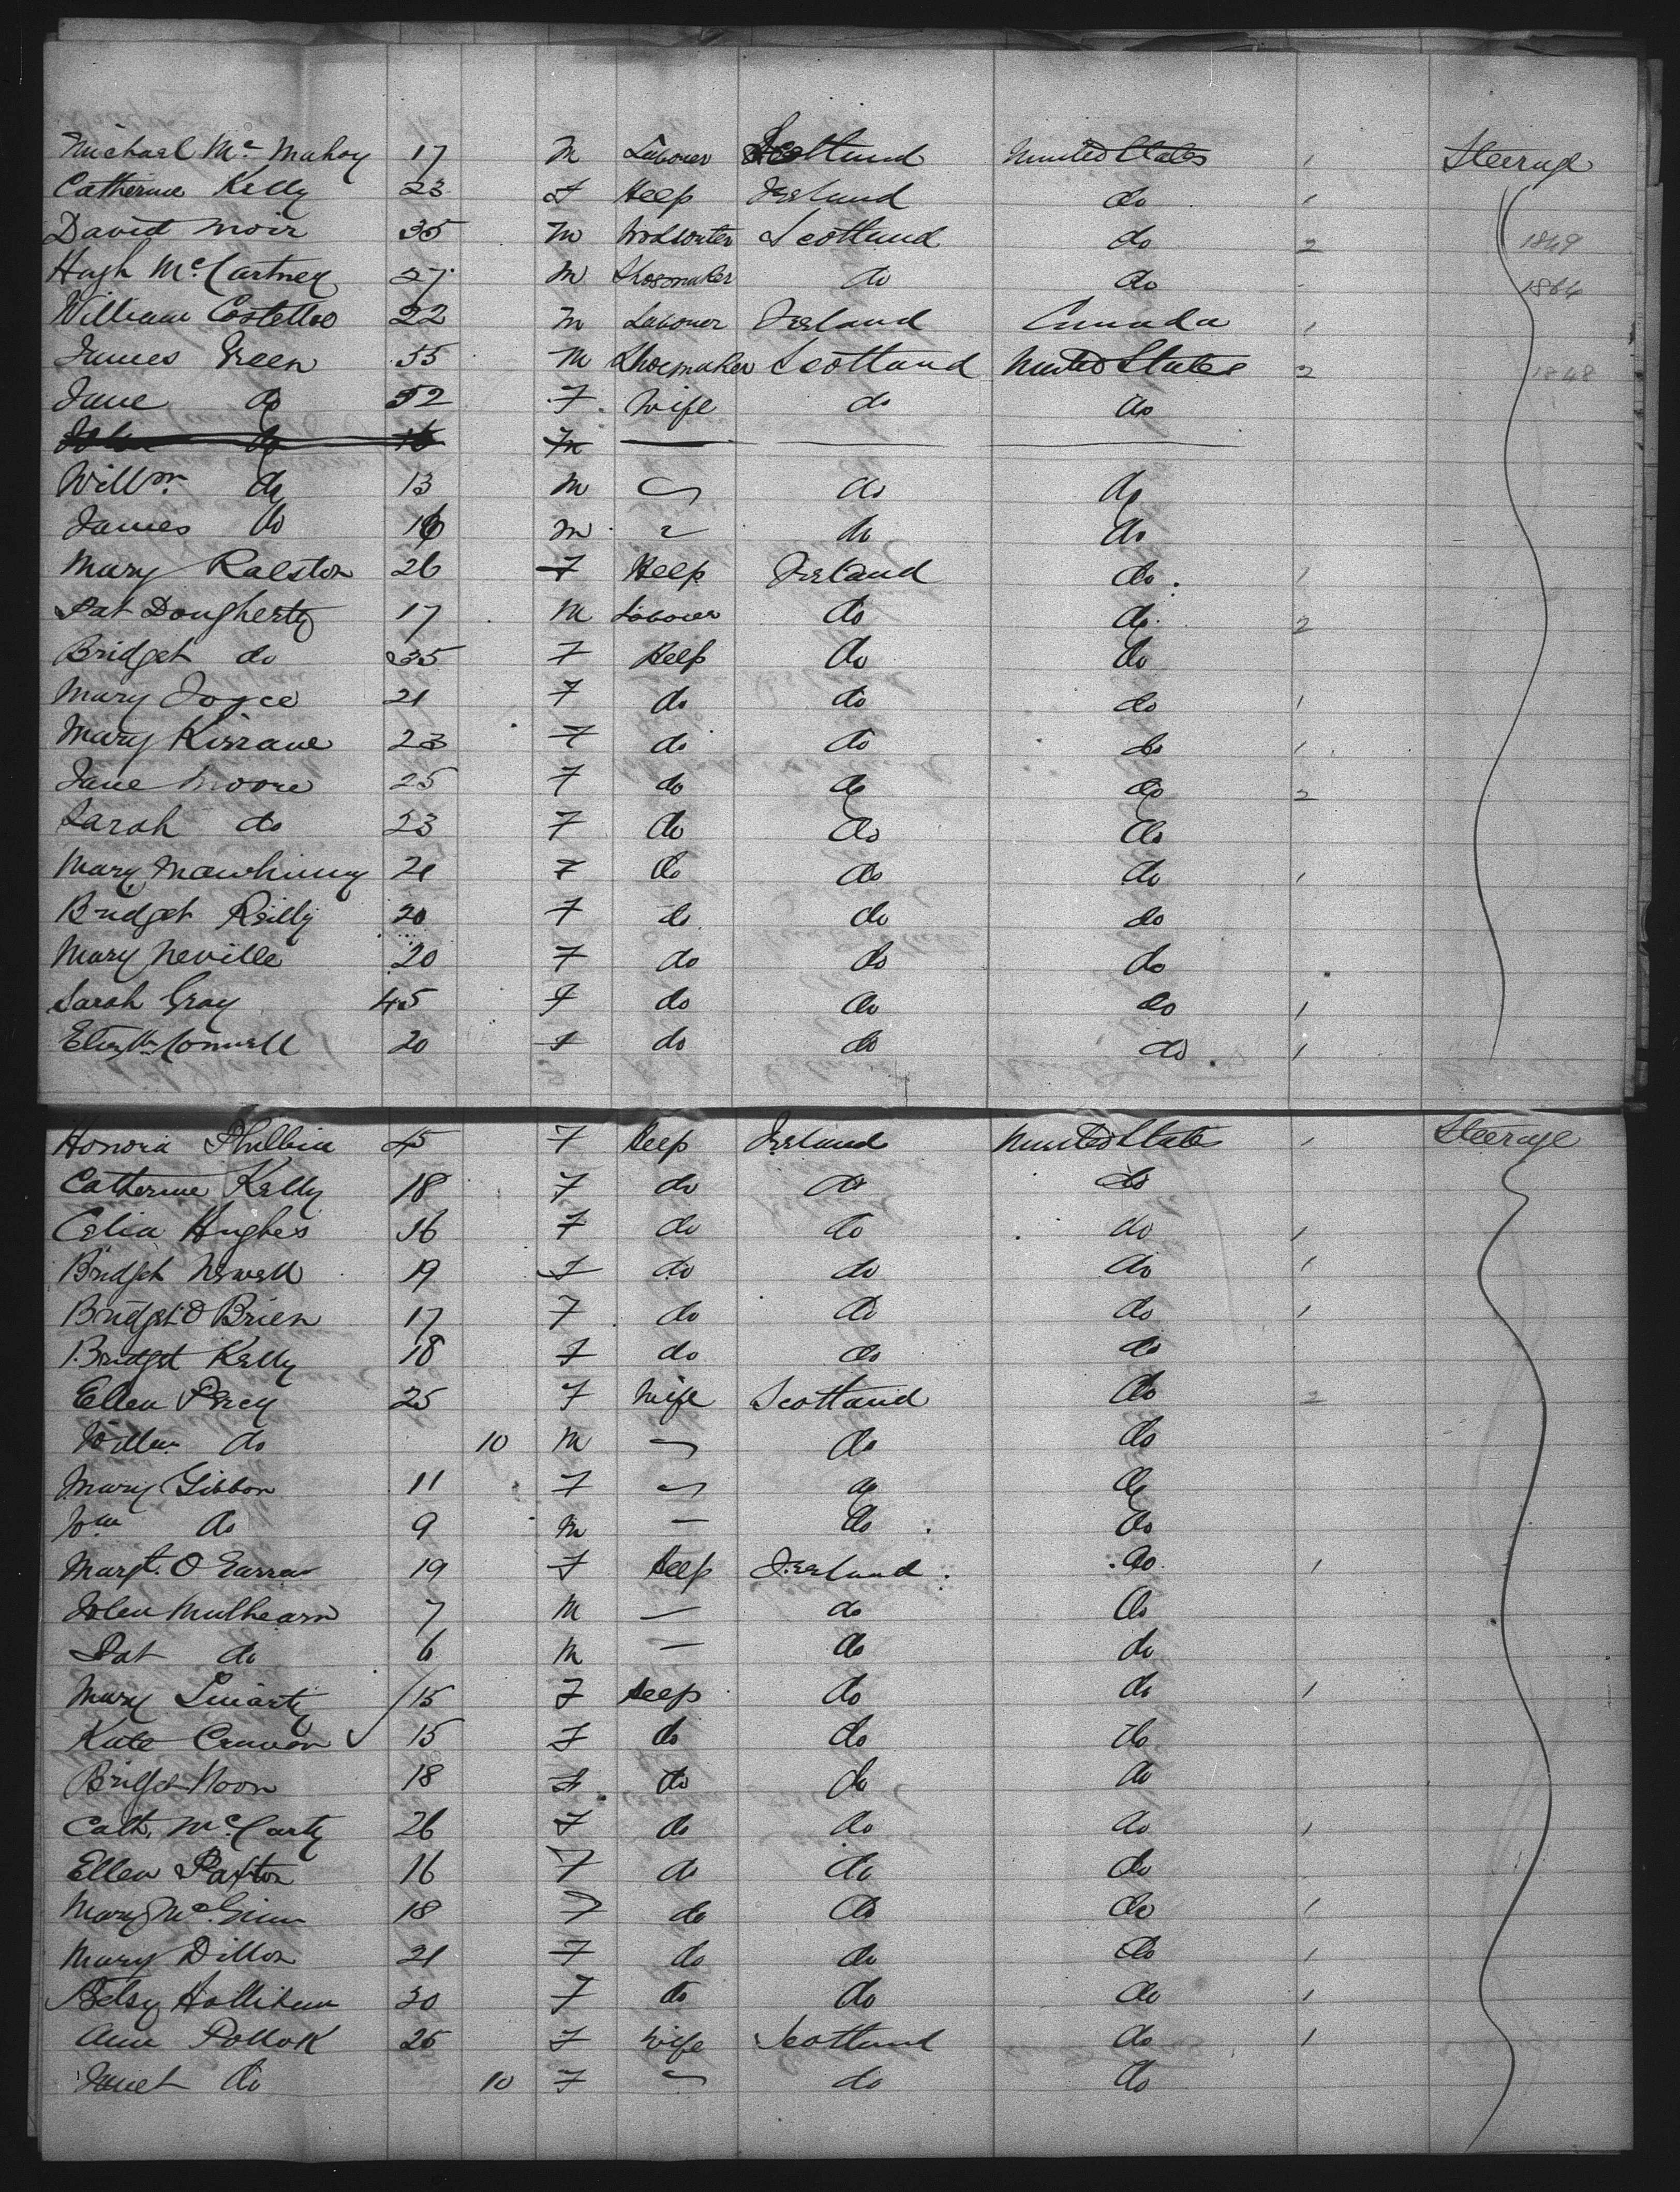 Michael McMahoy 17 M Labourer Scotland United States 1 Steerage
Catherine Kelly 23 F Help Ireland do 1
David Moir 35 M Scotland do 2 1849
Hugh McCartney 27 M Shoemaker do do 1864
William Costelloo 22 M Labourer Ireland Canada 1
James Green 55 M Shoemaker Scotland United States 2 1848
Jane do 52 F Wife do do
John do 16 M —
Willm do 13 M do do
James do M do do
Mary Ralston 26 F Help Ireland do 1
Pat Dougherty 17 M Labourer do do 2
Bridget do 35 F Help do do
Mary Joyce 21 F do do do 1
Mary Kirrane 23 F do do do 1
Jane Moore 25 F do do do 2
Sarah do 23 F do do do
Mary Mawhinny 21 F do do do 1
Bridget Reilly 20 F do do do
Mary Neville 20 F do do do
Sarah Gray 45 F do do do 1
Elizth Connell 20 F do do do 1
Honora Philbin 45 F Help Ireland United States 1 Steerage
Catherine Kelly 18 F do do do
Celia Hughes 16 F do do do 1
Bridget Newell 19 F do do do 1
Bridget O Brien 17 F do do do 1
Bridget Kelly 18 F do do do
Ellen Percy 25 F Wife Scotland do 2
Willm do 10 M do do
Mary Gibbon 11 F do do
Wm do 9 M — do do
Margt. O 19 F Help Ireland do 1
John Mulhearn 7 M — do do
Pat do 6 M — do do
Mary 15 F Help do do 1
Kate Cannon ✓ 15 F do do do
Bridget Noon 18 F do do do
Cath. McCarty 26 F do do do 1
Ellen Paxton 16 F do do do
Mary McGinn 18 F do do do 1
Mary Dillon 21 F do do do 1
Betsy Hollihan 30 F do do do 1
Ann Pollok 25 F Wife Scotland do 1
Janet do 10 F do do